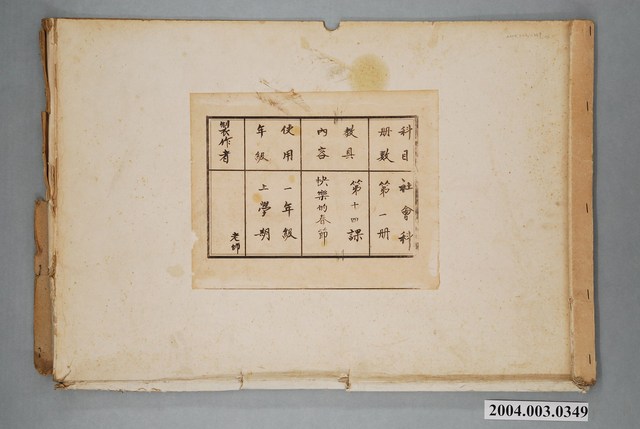 科目
社會科
册數
第一册
教具
內容
第十四課
快樂的春節
使用
年級
一年級
上學期
製作者
老師
2004.003.0349